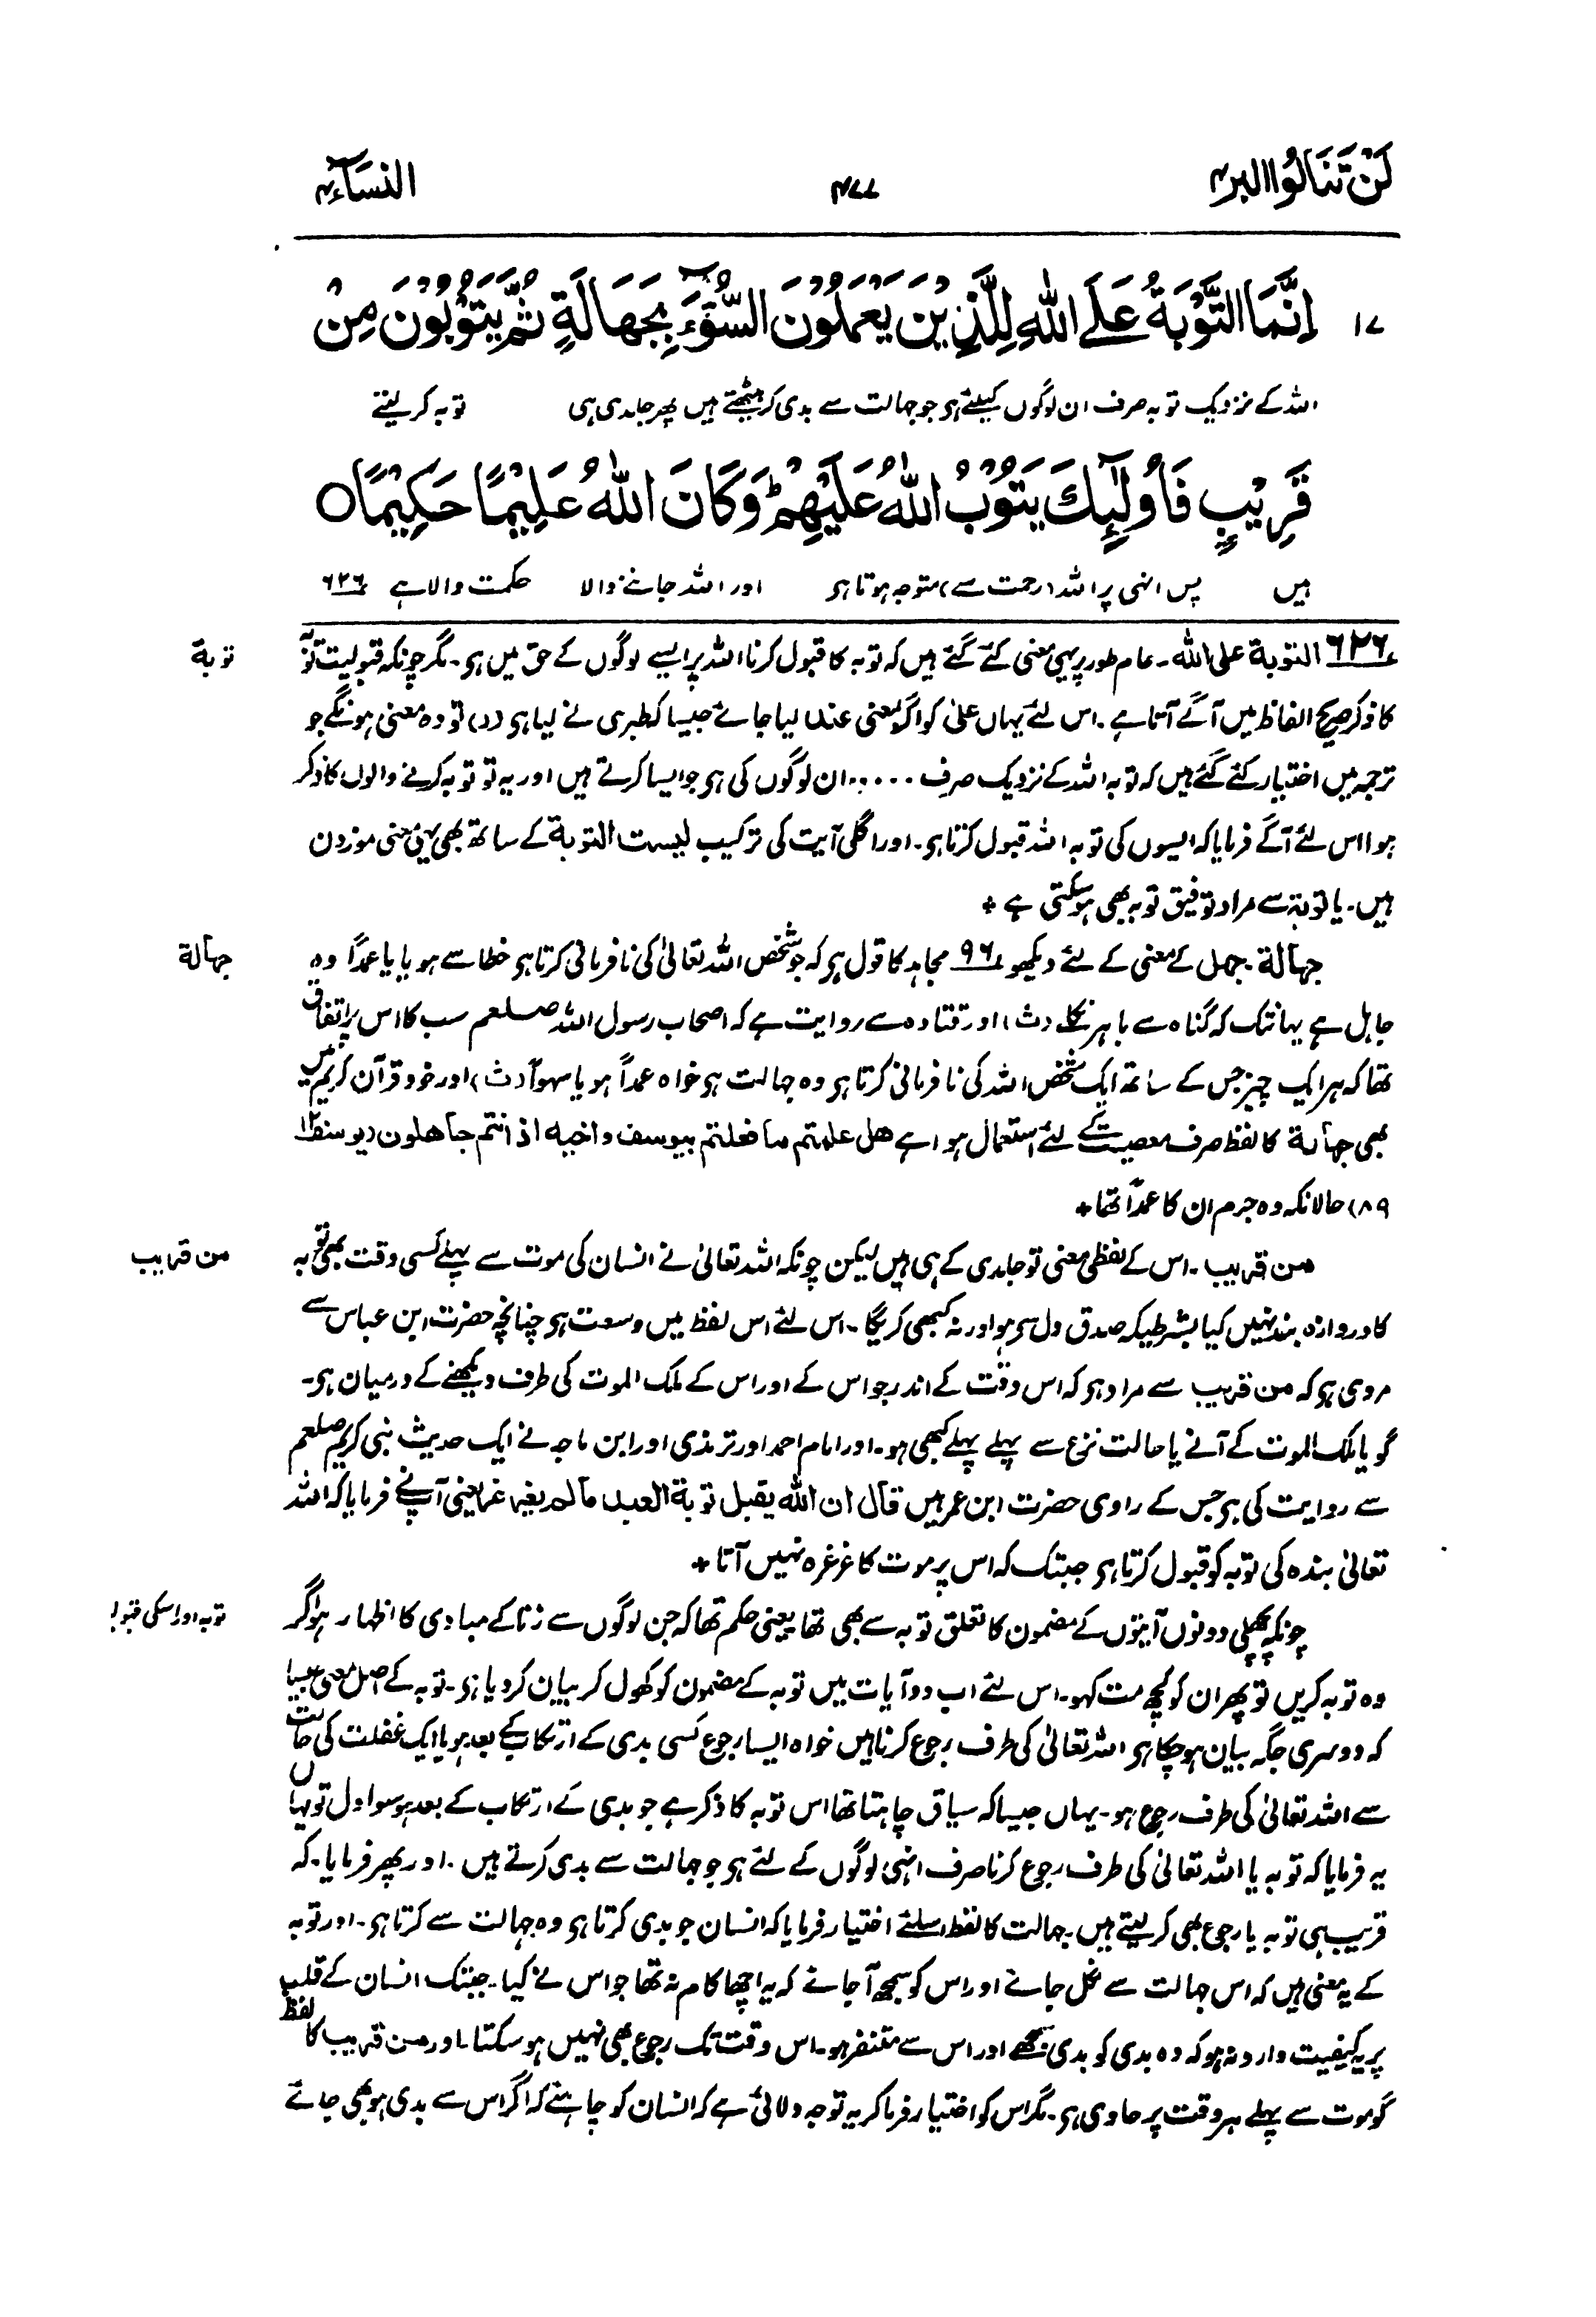 لَنْ تَنَالُوا الْبِرَّ ۴
۴۷۷
النِّسَآء ۴
۱۷
اِنَّمَا التَّوْبَةُ عَلَى اللّٰهِ لِلَّذِيْنَ يَعْمَلُوْنَ السُّوْٓءَ بِجَهَالَةٍ ثُمَّ يَتُوْبُوْنَ مِنْ
اللہ کے نزدیک توبہ صرف ان لوگوں کیلئے ہر جو جہالت سے بدی کر بیٹھتے ہیں پھر جلدی ہی توبہ کر لیتے
قَرِيْبٍ فَاُولٰٓئِكَ يَتُوْبُ اللّٰهُ عَلَيْهِمْ ؕ وَكَانَ اللّٰهُ عَلِيْمًا حَكِيْمًا ○
ہیں پس انہی پر اللہ (رحمت سے) متوجہ ہوتا ہر اور اللہ جاننے والا حکمت والا ہے ۶۲۶
توبة
۶۲۶ التوبة علی اللہ۔ عام طور پر یہی معنی کئے گئے ہیں کہ توبہ کا قبول کرنا اللہ پر ایسے لوگوں کے حق میں ہو۔ مگر چونکہ قبولیت توبہ
کا ذکر صریح الفاظ میں آگے آتا ہے۔ اس لئے یہاں علیٰ کو اگر بمعنی عند لیا جائے جیسا کہ طبری نے لیا ہو (ر) تو وہ معنی ہونگے جو
ترجمہ میں اختیار کئے گئے ہیں کہ توبہ اللہ کے نزدیک صرف ..... ان لوگوں کی ہو جو ایسا کرتے ہیں اور یہ تو توبہ کرنے والوں کا ذکر
ہوا اس لئے آگے فرمایا کہ ایسوں کی توبہ اللہ قبول کرتا ہو۔ اور اگلی آیت کی ترکیب لیست التوبة کے ساتھ بھی یہی معنی موزون
ہیں۔ یا توبۃ سے مراد توفیق توبہ بھی ہو سکتی ہے +
جہالة
جہالة۔ جہل کے معنی کے لئے دیکھو ۹۶ مجاہد کا قول ہو کہ جو شخص اللہ تعالیٰ کی نافرمانی کرتا ہو خطا سے ہو یا یا عمداً وہ
جاہل ہے یہانتک کہ گناہ سے باہر نکلے (ث) اور قتادہ سے روایت ہے کہ اصحاب رسول اللہ صلعم سب کا اس پر اتفاق
تھا کہ ہر ایک چیز جس کے ساتھ ایک شخص اللہ کی نافرمانی کرتا ہو وہ جہالت ہو خواہ عمداً ہو یا سہواً (ث) اور خود قرآن کریم میں
بھی جہالة کا لفظ صرف معصیت کے لئے استعمال ہوا ہے ھل علمتم ما فعلتم بیوسف واخیه اذ انتم جاھلون (یوسف ۱۲
۸۹) حالانکہ وہ جرم ان کا عمداً تھا +
من قریب
من قریب۔ اس کے لفظی معنی تو جلدی کے ہی ہیں لیکن چونکہ اللہ تعالیٰ نے انسان کی موت سے پہلے کسی وقت بھی توبہ
کا دروازہ بند نہیں کیا بشرطیکہ صدق دل سے ہو اور نہ کبھی کریگا۔ اس لئے اس لفظ میں وسعت ہو چنانچہ حضرت ابن عباس سے
مروی ہو کہ من قریب سے مراد ہو کہ اس وقت کے اندر جو اس کے اور اس کے ملک الموت کی طرف دیکھنے کے درمیان ہو۔
گویا ملک الموت کے آنے یا حالت نزع سے پہلے پہلے کبھی ہو۔ اور امام احمد اور ترمذی اور ابن ماجہ نے ایک حدیث نبی کریم صلعم
سے روایت کی ہو جس کے راوی حضرت ابن عمر ہیں قال ان اللہ یقبل توبة العبد ما لم یغرغر یعنی آپ نے فرمایا کہ اللہ
تعالیٰ بندہ کی توبہ کو قبول کرتا ہو جبتک کہ اس پر موت کا غرغرہ نہیں آتا +
توبہ اور اسکی قبول
چونکہ پچھلی دونوں آیتوں کے مضمون کا تعلق توبہ سے بھی تھا یعنی حکم تھا کہ جن لوگوں سے زنا کے مبادی کا اظہار ہو اگر
وہ توبہ کریں تو پھر ان کو کچھ مت کہو۔ اس لئے اب دو آیات میں توبہ کے مضمون کو کھول کر بیان کر دیا ہو۔ توبہ کے اصل معنی جیسا
کہ دوسری جگہ بیان ہو چکا ہو اللہ تعالیٰ کی طرف رجوع کرنا ہیں خواہ ایسا رجوع کسی بدی کے ارتکاب کے بعد ہو یا ایک غفلت کی حالت
سے اللہ تعالیٰ کی طرف رجوع ہو۔ یہاں جیسا کہ سیاق چاہتا تھا اس توبہ کا ذکر ہے جو بدی کے ارتکاب کے بعد ہو سو اول تو یہاں
یہ فرمایا کہ توبہ یا اللہ تعالیٰ کی طرف رجوع کرنا صرف انہی لوگوں کے لئے ہو جو جہالت سے بدی کرتے ہیں۔ اور پھر فرمایا۔ کہ
قریب ہی توبہ یا رجوع بھی کر لیتے ہیں۔ جہالت کا لفظ اسلئے اختیار فرمایا کہ انسان جو بدی کرتا ہو وہ جہالت سے کرتا ہو۔ اور توبہ
کے یہ معنی ہیں کہ اس جہالت سے نکل جائے اور اس کو سمجھ آ جائے کہ یہ اچھا کام نہ تھا جو اس نے کیا۔ جبتک انسان کے قلب
پر یہ کیفیت وارد نہ ہو کہ وہ بدی کو بدی سمجھے اور اس سے متنفر ہو۔ اس وقت تک رجوع بھی نہیں ہو سکتا۔ اور من قریب کا لفظ
گو موت سے پہلے ہر وقت پر حاوی ہو۔ مگر اس کو اختیار فرما کر یہ توجہ دلائی ہے کہ انسان کو چاہئے کہ اگر اس سے بدی ہو بھی جائے